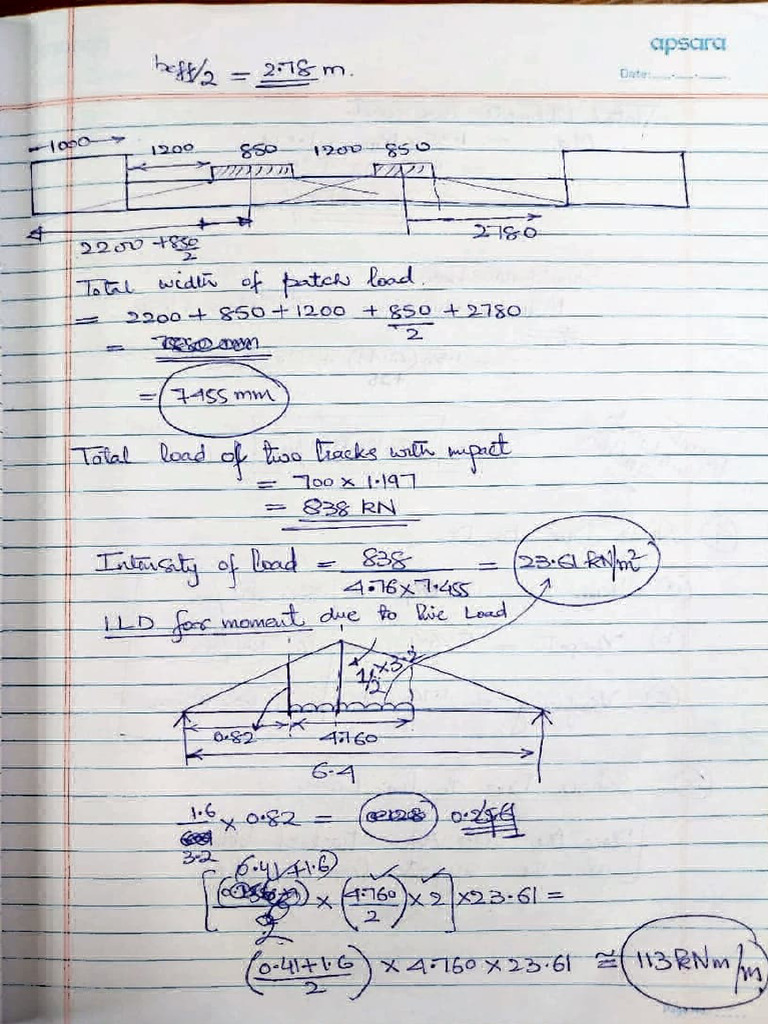 apsara
Date:
beff/2 = 2.78 m.
1000 1200 850 1200 850
2200 + 850/2 2780
Total width of patch load.
= 2200 + 850 + 1200 + 850/2 + 2780
=
= 7455 mm
Total load of two tracks with impact
= 700 x 1.197
= 838 KN
Intensity of load = 838 / 4.76 x 7.455 = 23.61 KN/m²
ILD for moment due to live Load
1/2 x 3.2
0.82 4.760
6.4
1.6/3.2 x 0.82 =
[(0.41+1.6)/2 x (4.760/2) x 2] x 23.61 =
(0.41+1.6 / 2) x 4.760 x 23.61 ≅ 113 KNm/m